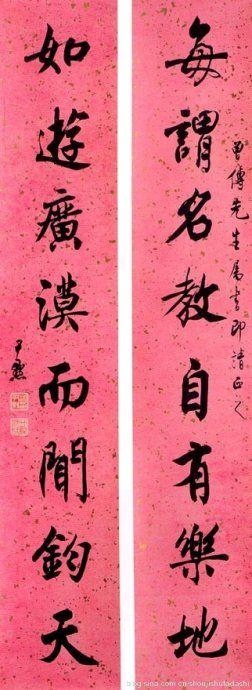 每謂名教自有樂地
傳先生屬書即請正之
如遊廣漠而聞鈞天
尹默
blog.sina.com.cn/shoujishufadashi